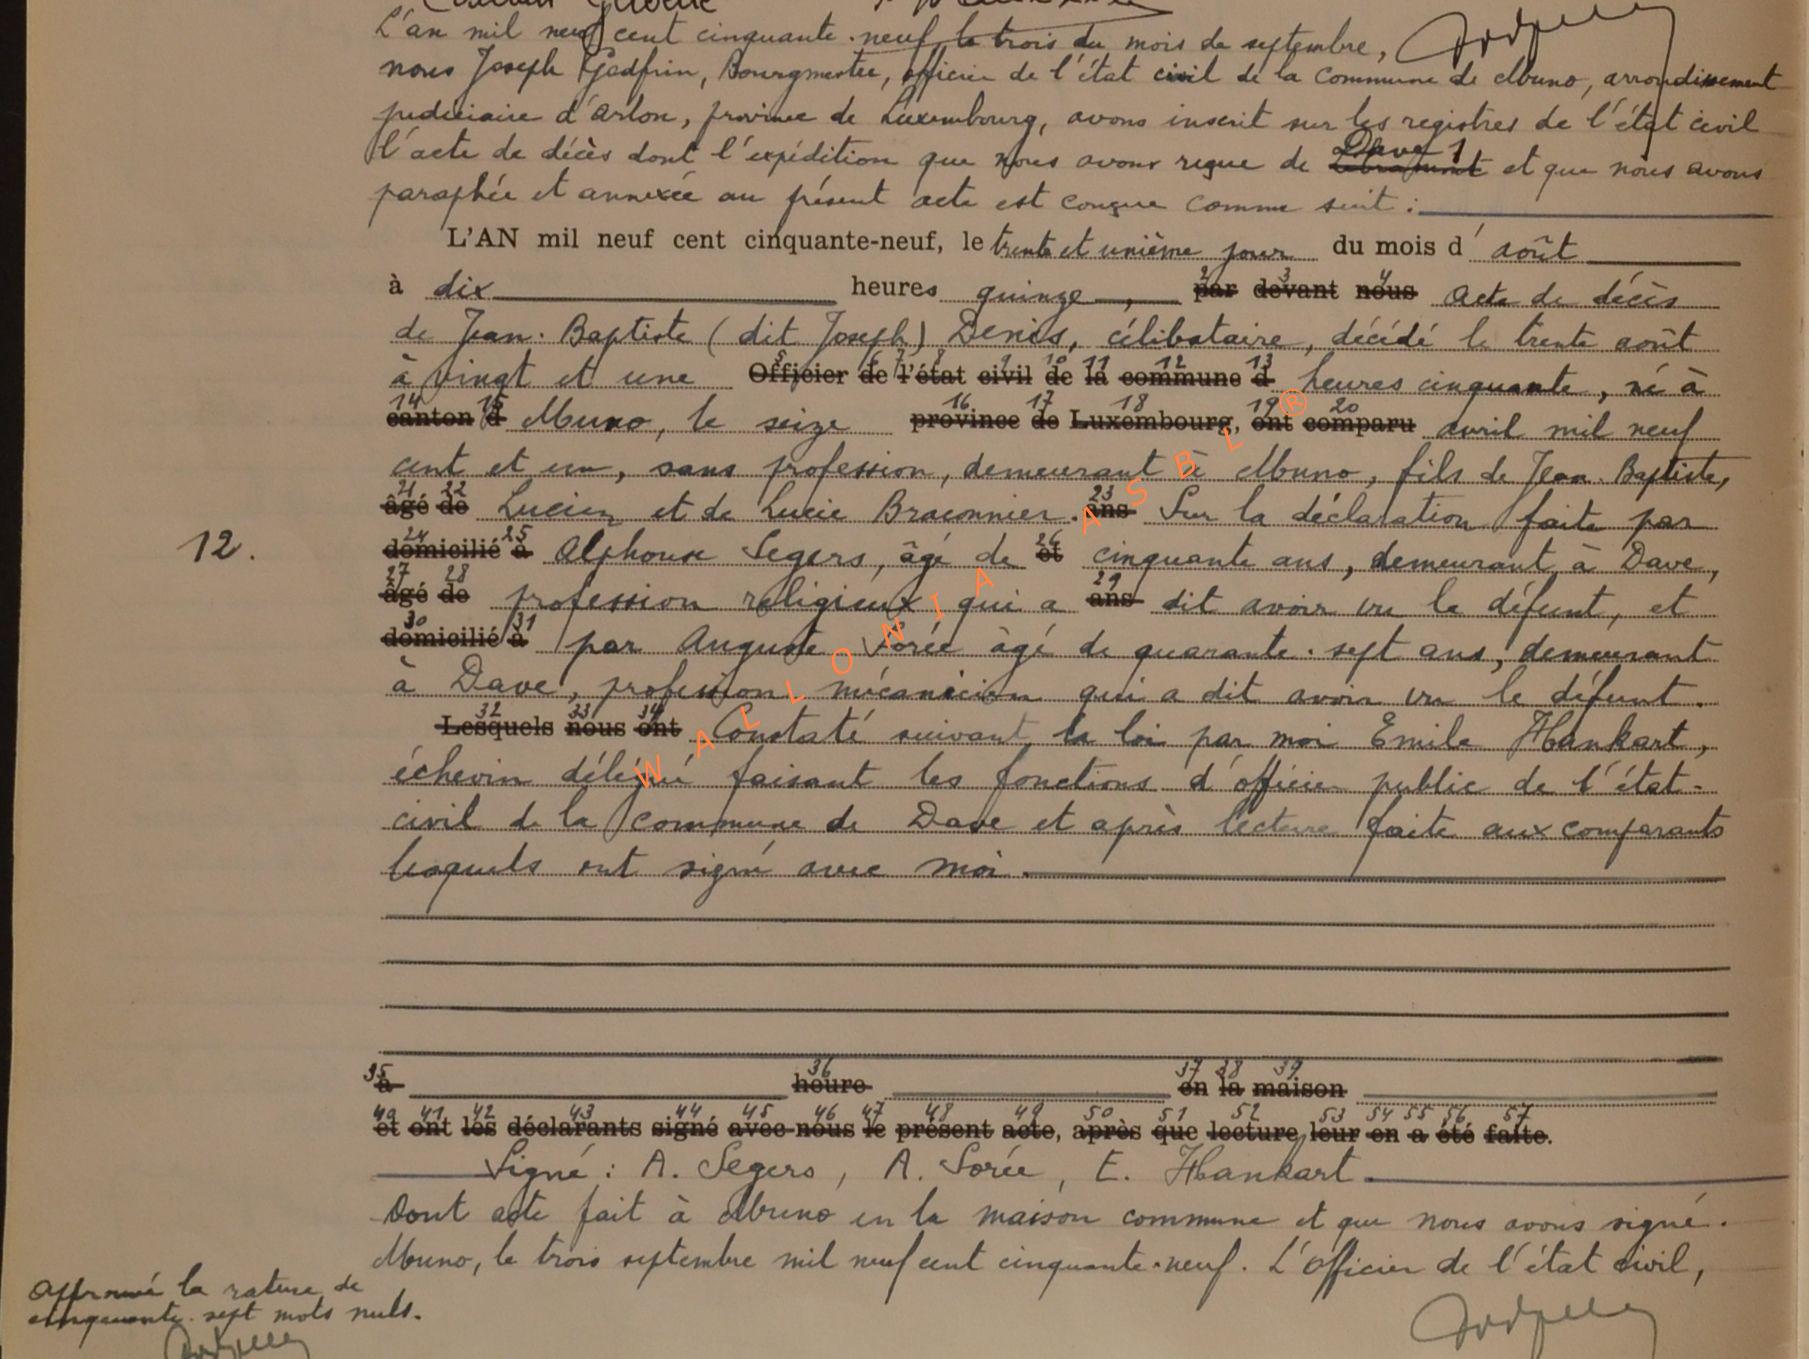 L'an mil neuf cent cinquante-neuf le trois du mois de septembre,
nous Joseph Godfrin, Bourgmestre, officier de l'état civil de la commune de Muno, arrondissement
judiciaire d'Arlon, province de Luxembourg, avons inscrit sur les registres de l'état civil
l'acte de décès dont l'expédition que nous avons reçue de Dave 1 et que nous avons
paraphée et annexée au présent acte est conçue comme suit :
L'AN mil neuf cent cinquante-neuf, le trente et unième jour du mois d'août
à dix heures quinze, 2 par 3 devant 4 nous Acte de décès
de Jean-Baptiste (dit Joseph) Denis, célibataire, décédé le trente août
à vingt et une 5 Officier 6 de 7 l'état 8 civil 9 de 10 la 11 commune 12 d 13 heures cinquante, né à
14 canton 15 d Muno, le seize 16 province 17 de 18 Luxembourg, 19 ont 20 comparu avril mil neuf
cent et un, sans profession, demeurant à Muno, fils de Jean-Baptiste,
21 âgé 22 de Lucien et de Lucie Braconnier. 23 ans Sur la déclaration faite par
24 domicilié 25 à Alphonse Segers, âgé de 26 et cinquante ans, demeurant à Dave,
27 âgé 28 de profession religieux qui a 29 ans dit avoir vu le défunt, et
30 domicilié 31 à par Auguste Sorée âgé de quarante-sept ans, demeurant
à Dave, profession mécanicien qui a dit avoir vu le défunt.
32 Lesquels 33 nous 34 ont Constaté suivant la loi par moi Emile Hankart,
échevin délégué faisant les fonctions d'officier public de l'état-
civil de la commune de Dave et après lecture faite aux comparants
lesquels ont signé avec moi.
12.
35 à 36 heure 37 en 38 la 39 maison
40 et 41 ont 42 les 43 déclarants 44 signé 45 avec 46 nous 47 le 48 présent 49 acte, 50 après 51 que 52 lecture 53 leur 54 en 55 a 56 été 57 faite.
Signé : A. Segers, A. Sorée, E. Hankart.
Dont acte fait à Muno en la maison commune et que nous avons signé.
Muno, le trois septembre mil neuf cent cinquante-neuf. L'Officier de l'état civil,
Approuvé la rature de
cinquante-sept mots nuls.
WALLONIA ASBL ®